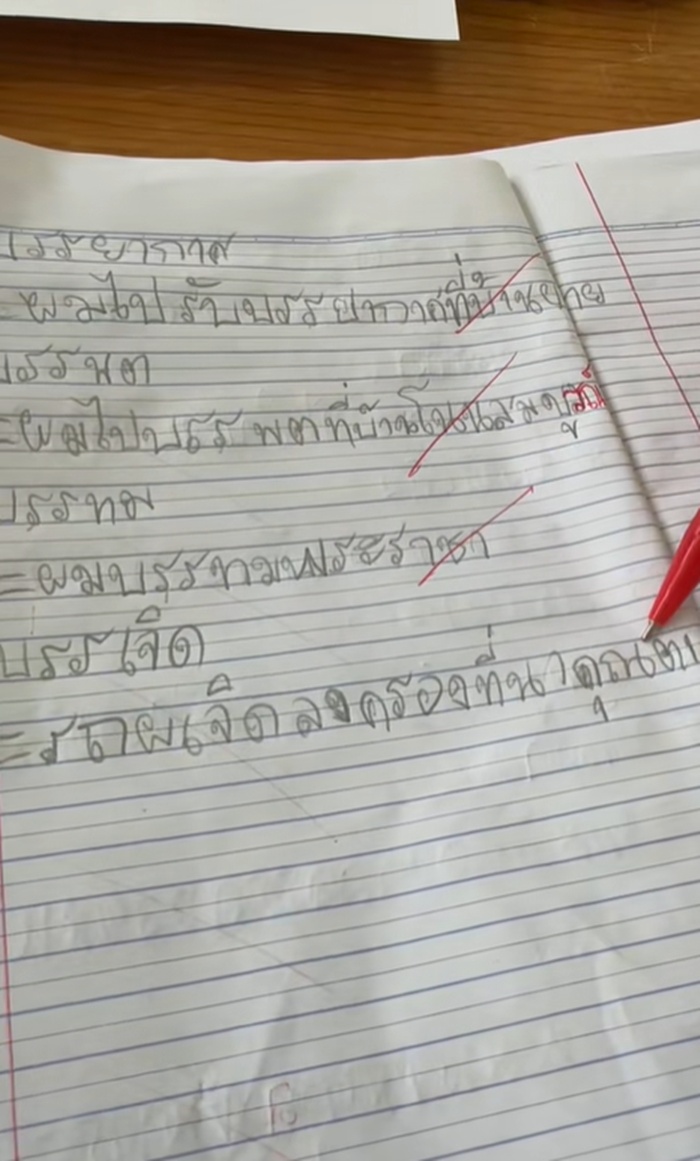 บรรยากาศ
=ผมไปรับบรรยากาศที่บ้านยาย
บรรพต
=ผมไปบรรพตที่บ้านโป่งสมบูรณ์
บรรทม
=ผมบรรทมพระราชา
บรรเจิด
=รถผเจิดลงคลองที่นา